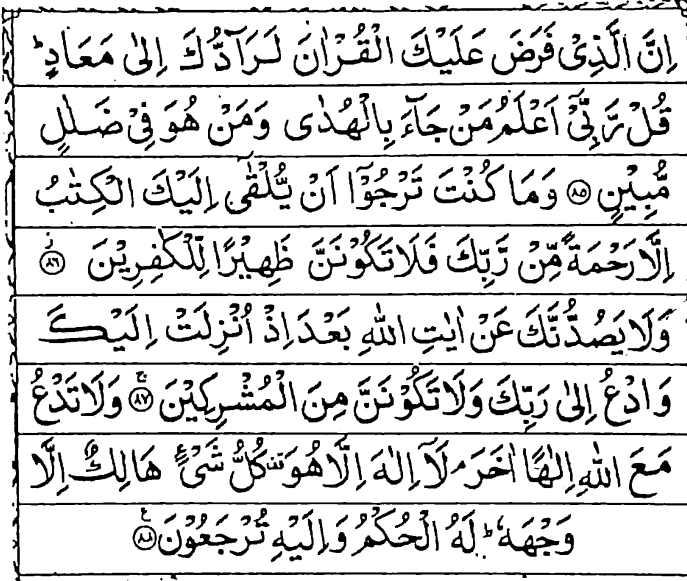 اِنَّ الَّذِیْ فَرَضَ عَلَیْكَ الْقُرْاٰنَ لَرَآدُّكَ اِلٰی مَعَادٍؕ
قُلْ رَّبِّیْۤ اَعْلَمُ مَنْ جَآءَ بِالْهُدٰی وَمَنْ هُوَ فِیْ ضَلٰلٍ
مُّبِیْنٍ ۝۸۵ وَمَا كُنْتَ تَرْجُوْۤا اَنْ یُّلْقٰۤی اِلَیْكَ الْكِتٰبُ
اِلَّا رَحْمَةً مِّنْ رَّبِّكَ فَلَا تَكُوْنَنَّ ظَهِیْرًا لِّلْكٰفِرِیْنَ ۝۸۶ؗ
وَلَا یَصُدُّنَّكَ عَنْ اٰیٰتِ اللّٰهِ بَعْدَ اِذْ اُنْزِلَتْ اِلَیْكَ
وَادْعُ اِلٰی رَبِّكَ وَلَا تَكُوْنَنَّ مِنَ الْمُشْرِكِیْنَ ۝۸۷ۚ وَلَا تَدْعُ
مَعَ اللّٰهِ اِلٰهًا اٰخَرَ ۘ لَاۤ اِلٰهَ اِلَّا هُوَ ۫ كُلُّ شَیْءٍ هَالِكٌ اِلَّا
وَجْهَهٗؕ لَهُ الْحُكْمُ وَاِلَیْهِ تُرْجَعُوْنَ ۝۸۸